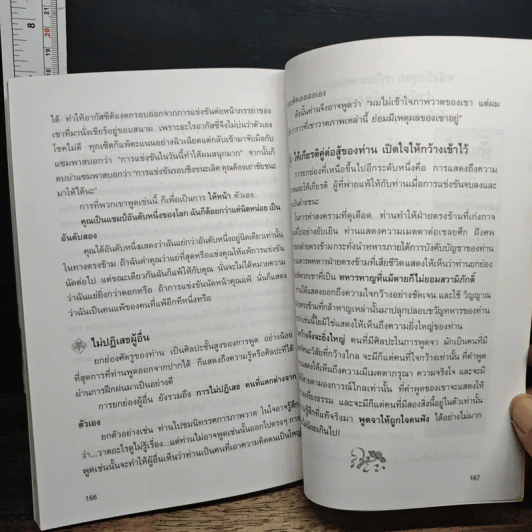 ได้ ทำให้อากัสซี่ต้องตกรอบออกจากการแข่งขันต่อหน้าภรรยาของ
เขาที่มานั่งเชียร์อยู่ขอบสนาม เพราะอะไรอากัสซี่จึงไม่บ่นว่าตัวเอง
โชคไม่ดี ทุกเซ็ตก็แพ้คะแนนอย่างฉิวเฉียดแต่กลับเข้ามาจับมือกับ
แซมพาสบอกว่า "การแข่งขันในวันนี้ทำให้ผมสนุกมาก" จากนั้นก็
ตบบ่าแซมพาสบอกว่า "การแข่งขันรอบชิงชนะเลิศ คุณต้องเอาชัยชนะ
มาให้ได้นะ"
การที่พวกเขาพูดเช่นนี้ ก็เพื่อเป็นการ ให้หน้า ตัวเอง
คุณเป็นแชมป์อันดับหนึ่งของโลก ฉันก็ด้อยกว่าแค่นิดหน่อย เป็น
อันดับสอง
คุณได้อันดับหนึ่งแสดงว่าฉันแย่กว่าอันดับหนึ่งอยู่นิดเดียวเท่านั้น
ในทางตรงข้าม ถ้าฉันด่าคุณว่าแย่ที่สุดหรือแช่งคุณให้แพ้การแข่งขัน
นัดต่อไป แต่ขณะเดียวกันฉันก็แพ้ให้กับคุณ นั่นจะไม่ได้หมายความ
ว่าฉันแย่ยิ่งกว่าดอกหรือ ถ้าการแข่งขันนัดหน้าคุณแพ้ นั่นก็แสดง
ว่าฉันเป็นคนแพ้ของคนที่แพ้อีกทีหนึ่งหรือ
ไม่ปฏิเสธผู้อื่น
ยกย่องศัตรูของท่าน เป็นศิลปะชั้นสูงของการพูด อย่างน้อย
ที่สุดการที่ท่านพูดออกจากปากได้ ก็แสดงถึงความรู้หรือศิลปะที่ได้
ผ่านการฝึกฝนมาเป็นอย่างดี
การยกย่องผู้อื่น ยังรวมถึง การไม่ปฏิเสธ คนที่แตกต่างจาก
ตัวเอง
ยกตัวอย่างเช่น ท่านไปชมนิทรรศการภาพวาด ในใจอาจรู้สึก
ว่า...วาดอะไรดูไม่รู้เรื่อง...แต่ท่านไม่อาจพูดเช่นนั้นออกไปตรงๆ การ
พูดเช่นนั้นจะทำให้ผู้อื่นเห็นว่าท่านเป็นคนที่เอาความคิดตนเป็นใหญ่
166
ดังนั้นท่านจึงอาจพูดว่า "ผมไม่เข้าใจภาพวาดของเขา แต่ผม
การที่เขาวาดภาพเหล่านี้ ย่อมมีเหตุผลของเขาอยู่"
ให้เกียรติคู่ต่อสู้ของท่าน เปิดใจให้กว้างเข้าไว้
การยกย่องที่เหนือขึ้นไปอีกระดับหนึ่งคือ การแสดงถึงความ
และให้เกียรติ ผู้ที่พ่ายแพ้ให้กับท่านเมื่อการแข่งขันจบลงและ
เป็นฝ่ายชนะ
ในการทำสงครามที่ดุเดือด ท่านทำให้ฝ่ายตรงข้ามที่เก่งกาจ
อย่างย่อยยับเยิน ท่านแสดงความเมตตาต่อเชลยศึก ฝังศพ
ฝ่ายตรงข้ามกระทั่งนำทหารภายใต้การบังคับบัญชาของท่าน
ทหารฝ่ายตรงข้ามที่เสียชีวิต แสดงให้เห็นว่าท่านยกย่อง
พวกเขาเป็น ทหารหาญที่แม้ตายก็ไม่ยอมสวามิภักดิ์
ได้แสดงออกถึงความใจกว้างอย่างชัดเจน และใช้ วิญญาณ
ข้ามที่กล้าหาญเหล่านั้นมาปลุกปลอบขวัญทหารของท่าน
เช่นนี้ใยมิใช่แสดงให้เห็นถึงความยิ่งใหญ่ของท่าน
จึงจะยิ่งใหญ่ คนที่มีศิลปะในการพูดจา มักเป็นคนที่มี
วิสัยที่กว้างไกล จะมีก็แต่คนที่ใจกว้างเท่านั้น ที่คำพูด
แสดงให้เห็นถึงความมีเมตตากรุณา ความจริงใจ และจะมี
สายตามองการณ์ไกลเท่านั้น ที่คำพูดของเขาจะแสดงให้
เที่ยงธรรม และจะมีก็แต่คนที่มีสองสิ่งนี้อยู่ในตัวเท่านั้น
รู้สึกที่แท้จริงมา พูดจาให้ถูกใจคนฟัง ได้อย่างไม่มาก
น้อยเกินไป!
167